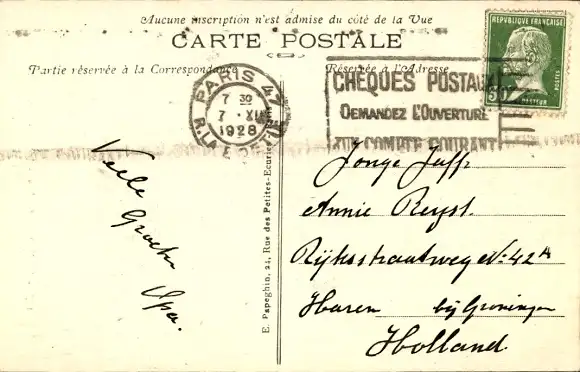 Aucune inscription n'est admise du côté de la Vue
CARTE POSTALE
Partie réservée à la Correspondance
Réservée à l'Adresse
RÉPUBLIQUE FRANÇAISE
POSTES
PASTEUR
PARIS 47
7 30
7 · XI
1928
CHÈQUES POSTAUX
DEMANDEZ L'OUVERTURE
D'UN COMPTE COURANT
Veele
Groeten
Opa.
E. Papeghin, 24, Rue des Petites-Ecuries
Jonge Juffr
Annie Reyst.
Rijksstraatweg No 42A
Haren bij Groningen
Holland